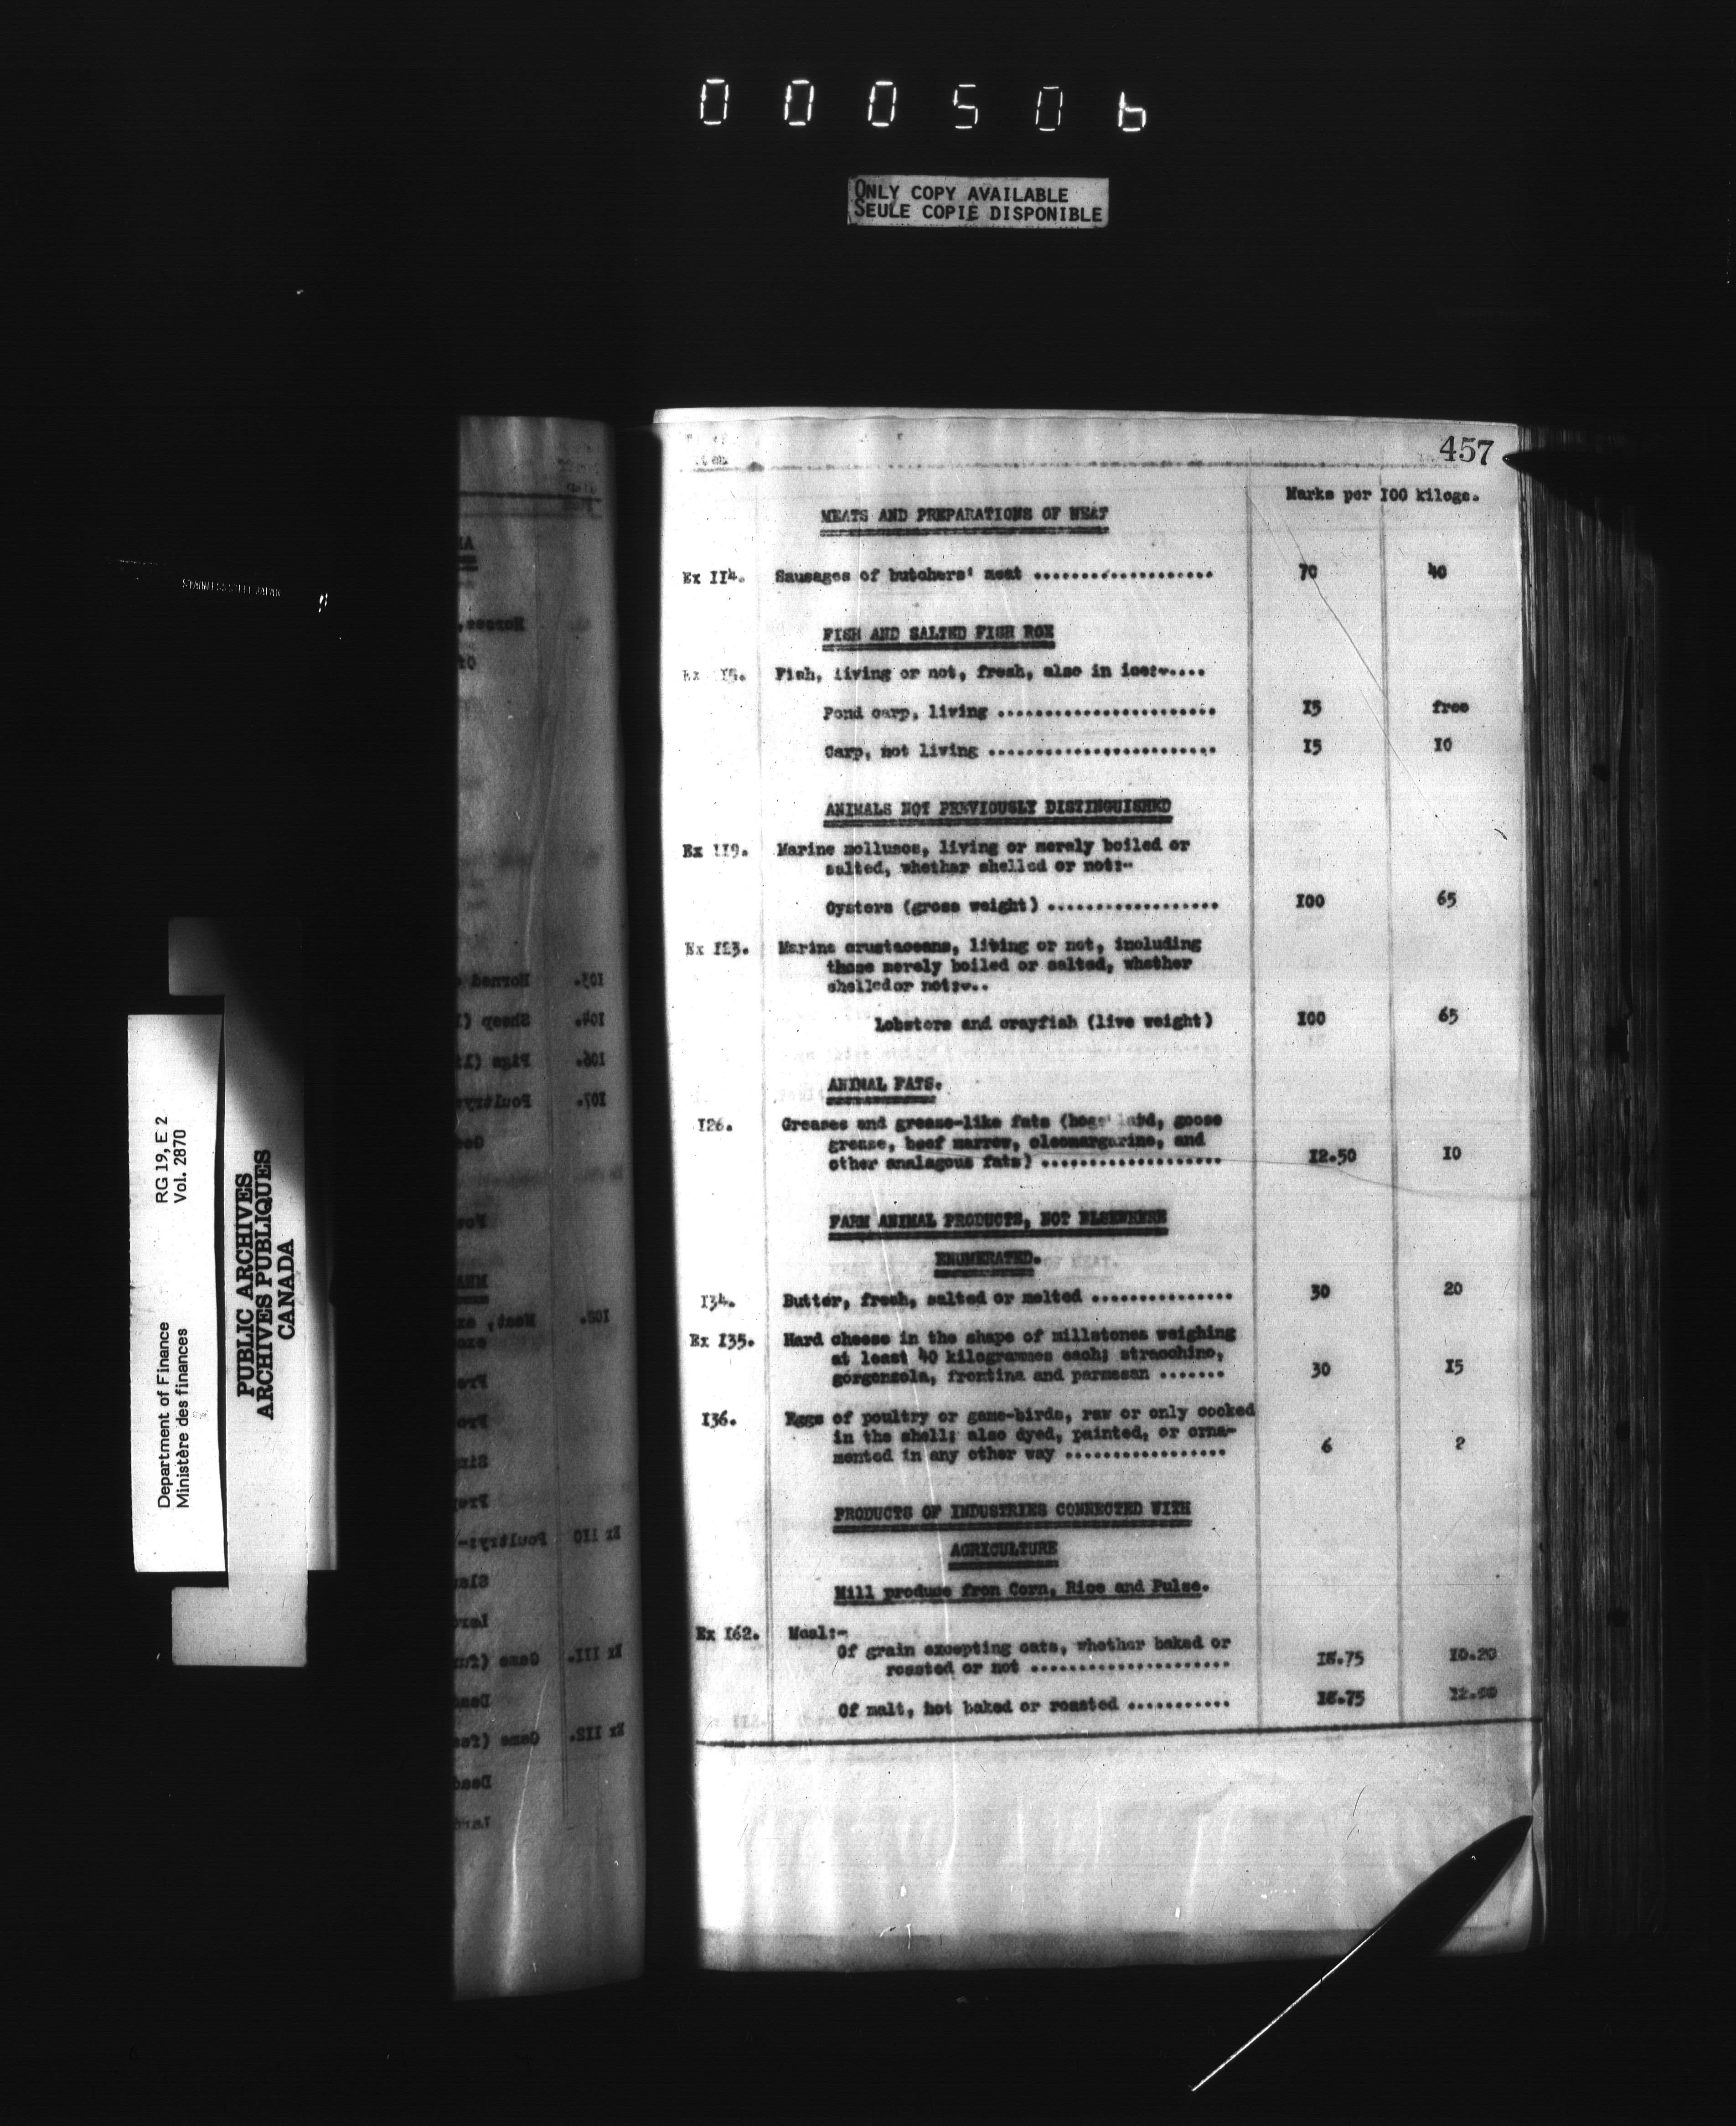 000506
ONLY COPY AVAILABLE
SEULE COPIE DISPONIBLE
457
Marks per 100 kilogs.
MEATS AND PREPARATIONS OF MEAT
Ex 114. Sausages of butchers' meat ................... 70 40
FISH AND SALTED FISH ROE
Ex 115. Fish, living or not, fresh, also in ice:-....
Pond carp, living ....................... 15 free
Carp, not living ........................ 15 10
ANIMALS NOT PREVIOUSLY DISTINGUISHED
Ex 119. Marine molluscs, living or merely boiled or
salted, whether shelled or not:-
Oysters (gross weight) .................. 100 65
Ex 123. Marine crustaceans, living or not, including
those merely boiled or salted, whether
shelledor not:-..
Lobsters and crayfish (live weight) 100 65
ANIMAL FATS.
126. Greases and grease-like fats (hogs' lard, goose
grease, beef marrow, oleomargarine, and
other analagous fats) ................... 12.50 10
FARM ANIMAL PRODUCTS, NOT ELSEWHERE
ENUMERATED.
134. Butter, fresh, salted or melted ............... 30 20
Ex 135. Hard cheese in the shape of millstones weighing
at least 40 kilogrammes each; stracchino,
gorgonzola, frontina and parmesan ....... 30 15
136. Eggs of poultry or game-birds, raw or only cooked
in the shell; also dyed, painted, or orna-
mented in any other way ................. 6 2
PRODUCTS OF INDUSTRIES CONNECTED WITH
AGRICULTURE
Mill produce from Corn, Rice and Pulse.
Ex 162. Meal:-
Of grain excepting oats, whether baked or
roasted or not ..................... 18.75 10.20
Of malt, not baked or roasted ........... 18.75
Department of Finance RG 19, E 2
Ministère des finances Vol. 2870
PUBLIC ARCHIVES
ARCHIVES PUBLIQUES
CANADA
STAINLESS STEEL JAPAN